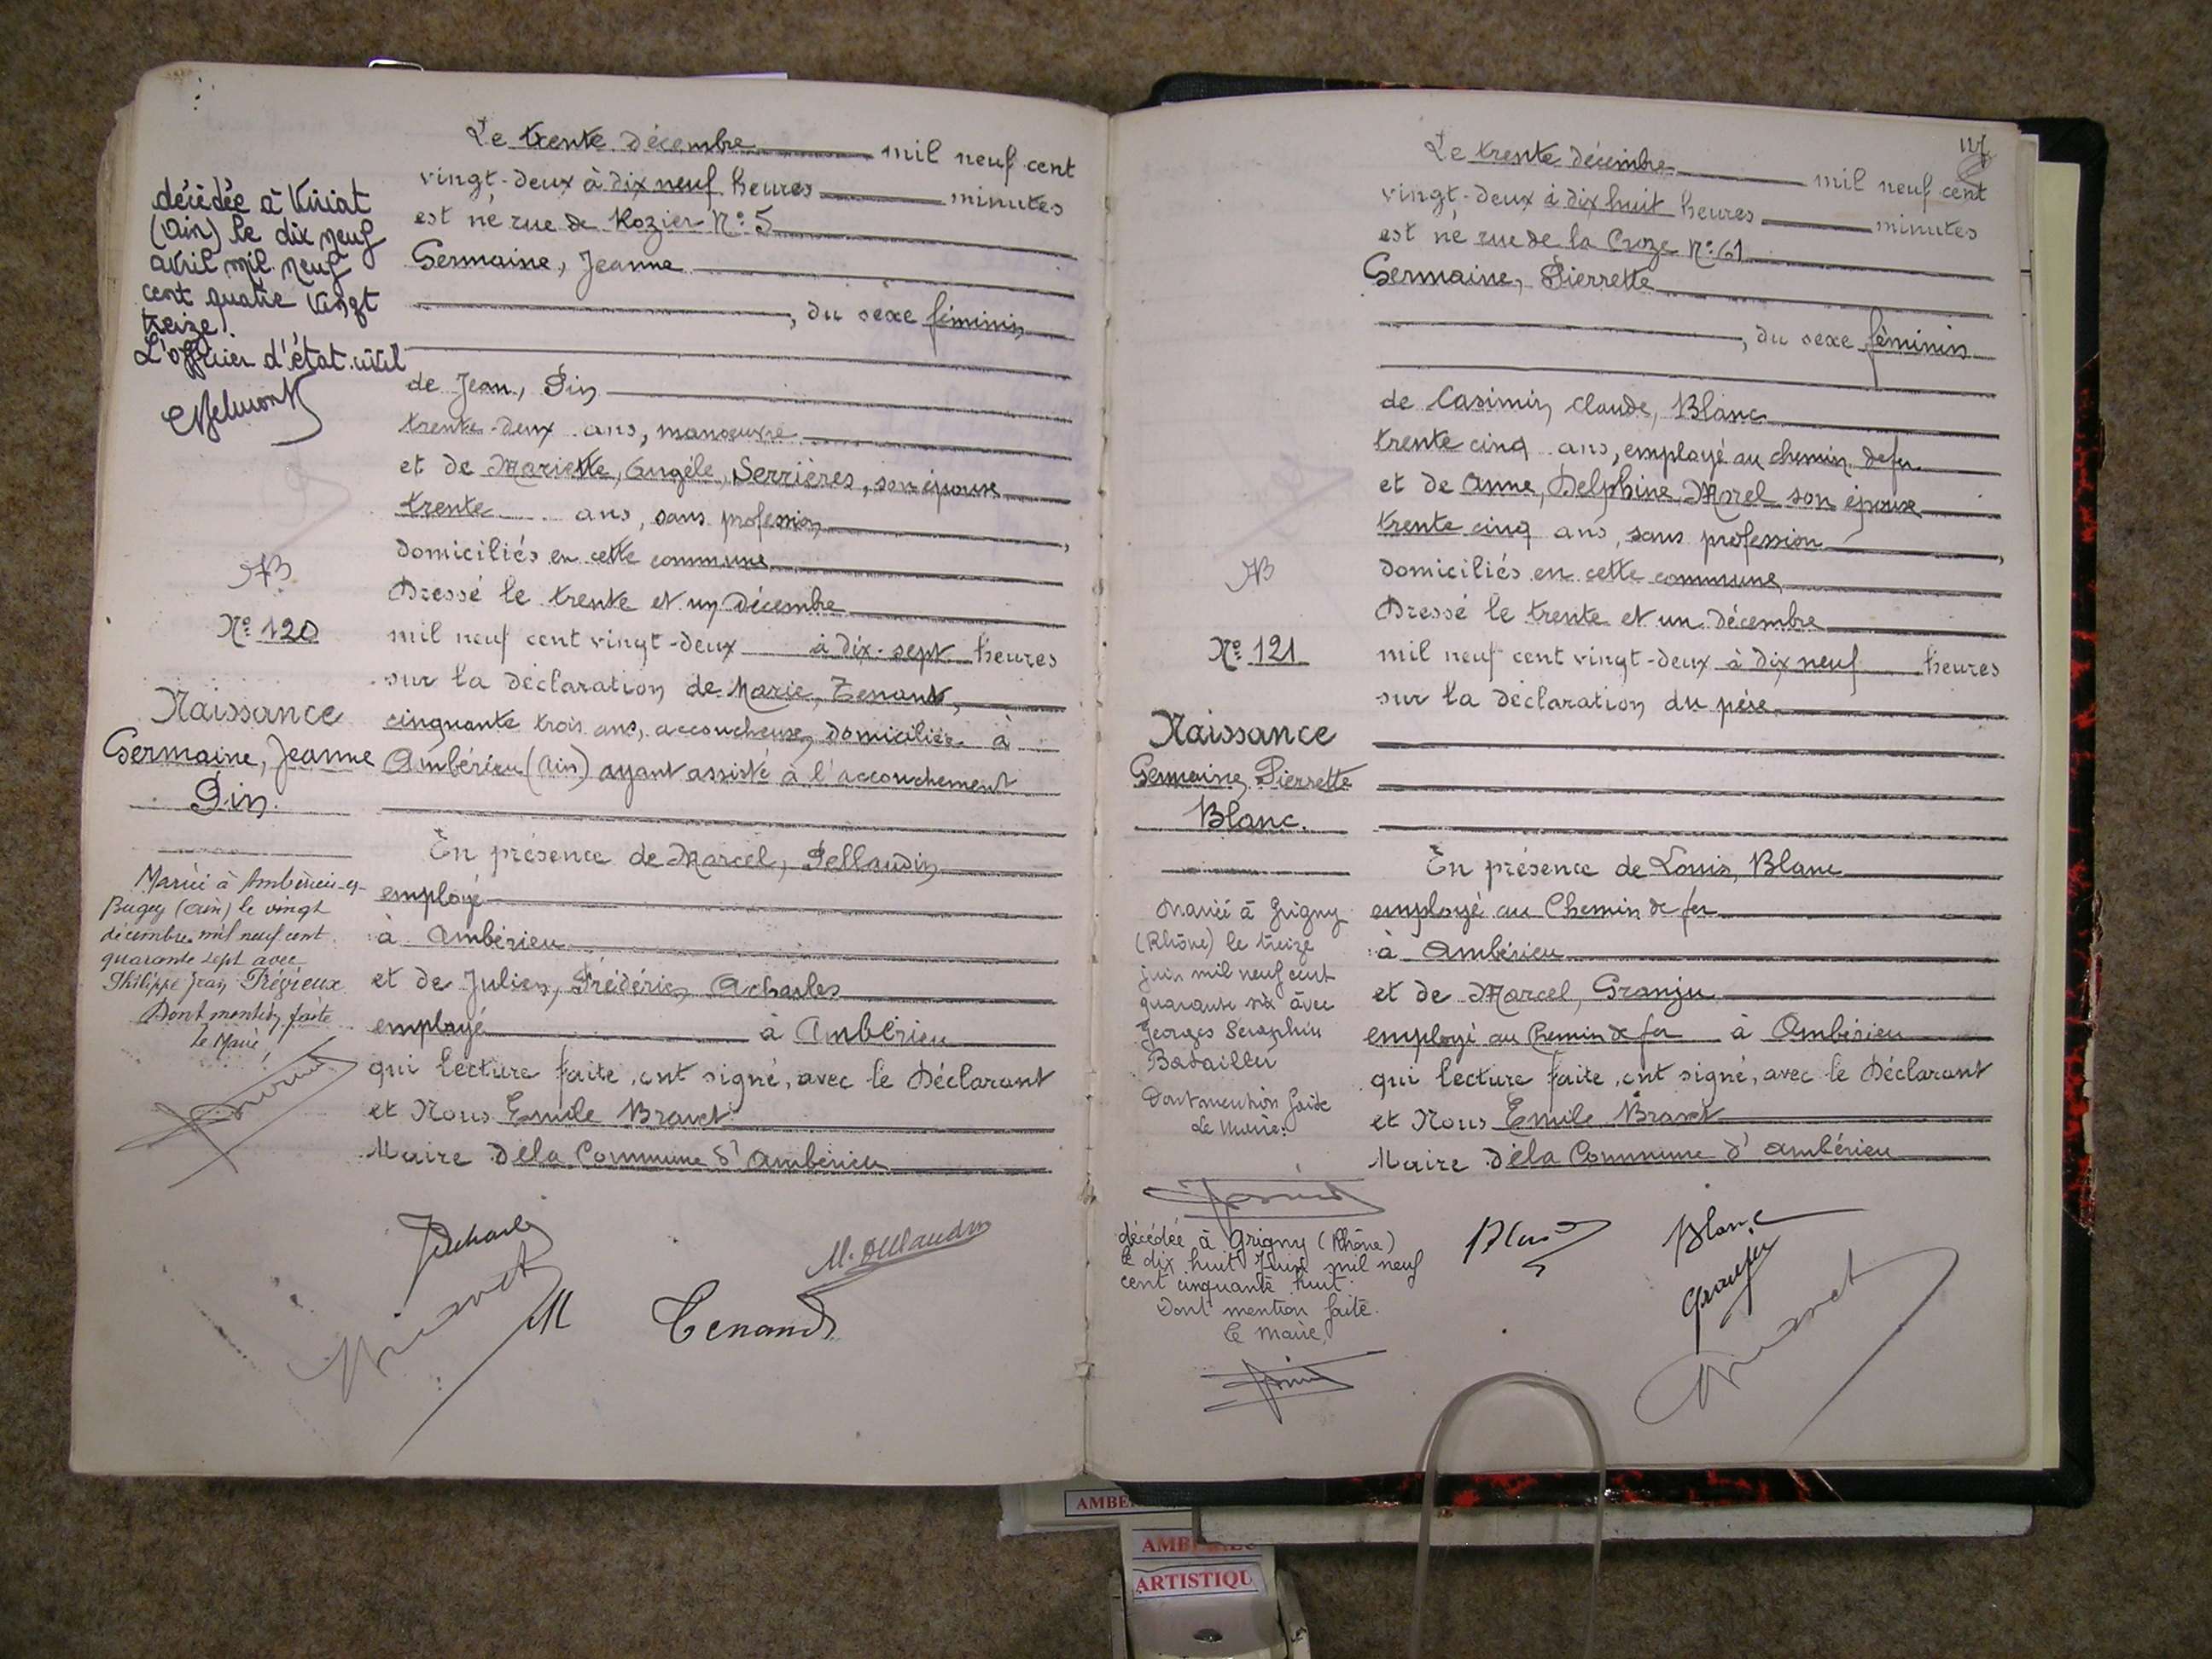 décédée à Viriat
(Ain) le dix neuf
avril mil neuf
cent quatre vingt
treize.
L'officier d'état civil
N° 120
Naissance
Germaine, Jeanne
Pin.
Marié à Ambérieu-en-
Bugey (Ain) le vingt
décembre mil neuf cent
quarante sept avec
Philippe Jean
Dont mention faite
le Maire,
Le trente décembre mil neuf cent
vingt-deux à dix neuf heures minutes
est né rue de Rozier N° 5
Germaine, Jeanne
, du sexe féminin
de Jean, Pin
trente-deux ans, manoeuvre
et de Mariette, Angéle, Serrières, son épouse
trente ans, sans profession,
domiciliés en cette commune
Dressé le trente et un décembre
mil neuf cent vingt-deux à dix-sept heures
sur la déclaration de Marie, Tenand,
cinquante trois ans, accoucheuse, domiciliée à
Ambérieu (Ain) ayant assisté à l'accouchement
En présence de Marcel, Pellaudin
employé
à Ambérieu
et de Julien, Frédéric, Acharles
employé à Ambérieu
qui lecture faite, ont signé, avec le Déclarant
et Nous Emile Bravet
Maire de la Commune d'Ambérieu
Tenand
N° 121
Naissance
Germaine, Pierrette
Blanc.
Mariée à Grigny
(Rhône) le treize
juin mil neuf cent
quarante six avec
Georges Séraphin
Dont mention faite
Le Maire.
décédée à Grigny (Rhône)
le dix huit Juin mil neuf
cent cinquante huit.
Dont mention faite.
Le Maire,
Le trente décembre mil neuf cent
vingt-deux à dix huit heures minutes
est né rue de la Croze N° 61
Germaine, Pierrette
, du sexe féminin
de Casimir, Claude, Blanc
trente cinq ans, employé au chemin de fer
et de Anne, Delphine, Morel son épouse
trente cinq ans, sans profession,
domiciliés en cette commune
Dressé le trente et un décembre
mil neuf cent vingt-deux à dix neuf heures
sur la déclaration du père
En présence de Louis, Blanc
employé au Chemin de fer
à Ambérieu
et de Marcel, Granju
employé au Chemin de fer à Ambérieu
qui lecture faite, ont signé, avec le Déclarant
et Nous Emile Bravet
Maire de la Commune d'Ambérieu
Blanc
Blanc
Granju
Bravet
ARTISTIQU